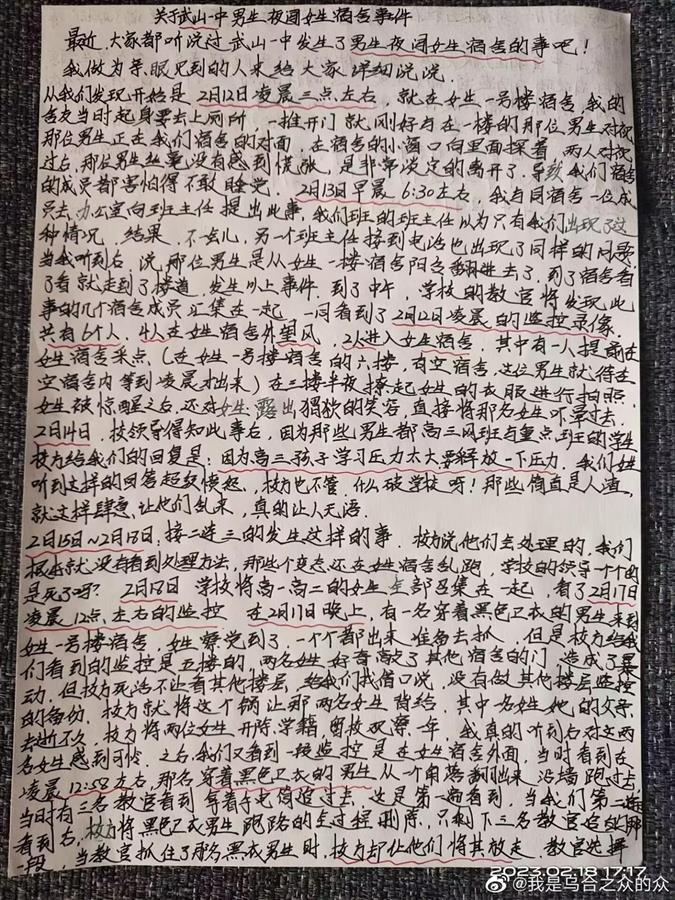 关于武山一中男生夜闯女生宿舍事件
最近,大家都听说过武山一中发生了男生夜闯女生宿舍的事吧!
我做为亲眼见到的人来给大家详细说说.
从我们发现开始是2月12日凌晨三点左右,就在女生一号楼宿舍,我的
舍友当时起身要去上厕所,一推开门就刚好与在一楼的那位男生对视
那位男生正在我们宿舍的对面,在宿舍的小窗口向里面探着,两人对视
过后,那位男生丝毫没有感到慌张,是非常淡定的离开了.导致我们宿舍
的成员都害怕得不敢睡觉. 2月13日早晨6:30左右,我与同宿舍一位成
员去办公室向班主任提出此事,我们班的班主任以为只有我们出现了这
种情况,结果,不一会儿,另一个班主任接到电话也出现了同样的问题.
当我听到后,说,那位男生是从女生一楼宿舍阳台翻进去了,到了宿舍看
了看就走到了楼道,发生以上事件.到了中午,学校的教官将发现此
事的几个宿舍成员汇集在一起,一同看到了2月12日凌晨的监控录像,
共有6个人,4人在女生宿舍外望风,2人进入女生宿舍,其中有一人提前在
女生宿舍采点(在女生一号楼宿舍的六楼,有空宿舍,这位男生就待在
空宿舍内等到凌晨才出来)在三楼半夜撩起女生的衣服进行拍照.
女生被惊醒之后,还对女生露出猥琐的笑容,直接将那名女生吓晕过去.
2月14日,校领导得知此事后,因为那些男生都高三风班与重点班的学生
校方给我们的回复是:因为高三孩子学习压力太大要释放一下压力.我们女生
听到这样的回答超级愤怒,校方也不管.什么破学校呀!那些简直是人渣,
就这样肆意让他们乱来,真的让人无语.
2月15日~2月18日:接二连三的发生这样的事.校方说他们去处理的,我们
根本就没有看到处理方法,那些个变态还在女生宿舍乱跑,学校的领导一个个的
是死了吗? 2月18日 学校将高一高二的女生全部召集在一起,看了2月17日
凌晨12点左右的监控 在2月17日晚上,有一名穿着黑色卫衣的男生来到
女生一号楼宿舍,女生察觉到了,一个个都出来准备去抓,但是校方给我
们看到的监控是五楼的,两名女生好奇敲了其他宿舍的门,造成了暴
动,但校方死活不让看其他楼层,给我们找借口说,没有做其他楼层监控
的备份.校方就将这个锅让那两名女生背给.其中一名女生她的父亲
去逝不久,校方将两位女生开除学籍,留校观察一年,我真的听到后对这两
名女生感到可怜.之后,我们又看到一段监控是在女生宿舍外面,当时看到在
凌晨12:58左右,那名穿着黑色卫衣的男生从一个角落翻出来,沿墙跑过去,
当时有三名教官看到,拿着手电筒追过去,这是第一遍看到,当我们第二遍
看到后,校方将黑色卫衣男生跑路的全过程删除,只剩下三名教官追的那
一段.当教官抓住了那名黑衣男生时,校方却让他们将其放走.教官选择
2023.02.18 17:17
@我是乌合之众的众